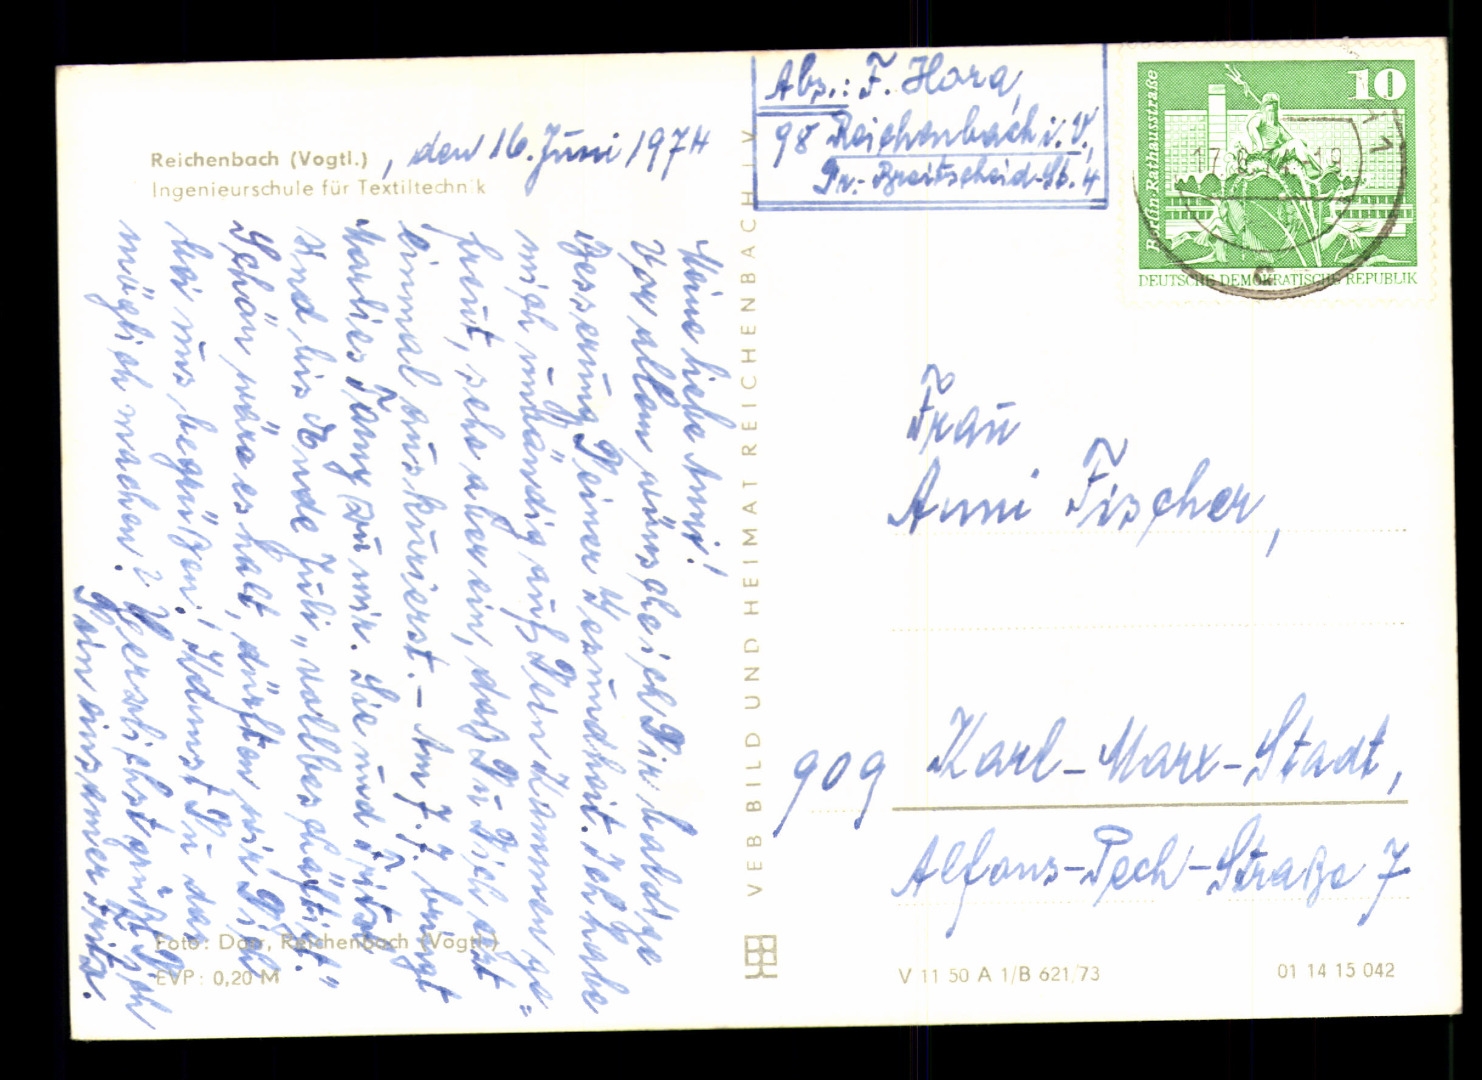 Reichenbach (Vogtl.), den 16. Juni 1974
Ingenieurschule für Textiltechnik
Meine liebe Anni!
Vor allem wünsche ich Dir baldige
Besserung Deiner Gesundheit. Ich habe
mich unbändig auf Dein Kommen ge=
freut, sehe aber ein, daß Du Dich erst
einmal auskurierst. – Am 7. 7. bringt
Marlies Tamy zu mir. Sie und Fritz
sind bis Ende Juli „vollbeschäftigt."
Schön wäre es halt, dürften wir Dich
bei uns begrüßen! Kannst Du das
möglich machen? Herzlichst grüßt Dich
Dein einsamer Fritz.
Foto: Darr, Reichenbach (Vogtl.)
EVP: 0,20 M
VEB BILD UND HEIMAT REICHENBACH I. V.
Abs.: F. Hora,
98 Reichenbach i. V.,
Dr.-Breitscheid-Str. 4
10
Berlin-Rathausstraße
DEUTSCHE DEMOKRATISCHE REPUBLIK
Frau
Anni Fischer,
909 Karl-Marx-Stadt,
Alfons-Pech-Straße 7
V 11 50 A 1/B 621/73
01 14 15 042